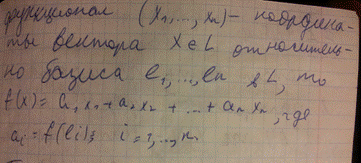 функционал (x₁,...,xₙ) - координа-
ты вектора x∈L относитель-
но базиса e₁,...,eₙ в L, то
f(x)= a₁x₁+a₂x₂+...+aₙxₙ, где
aᵢ=f(eᵢ); i=1,...,n.